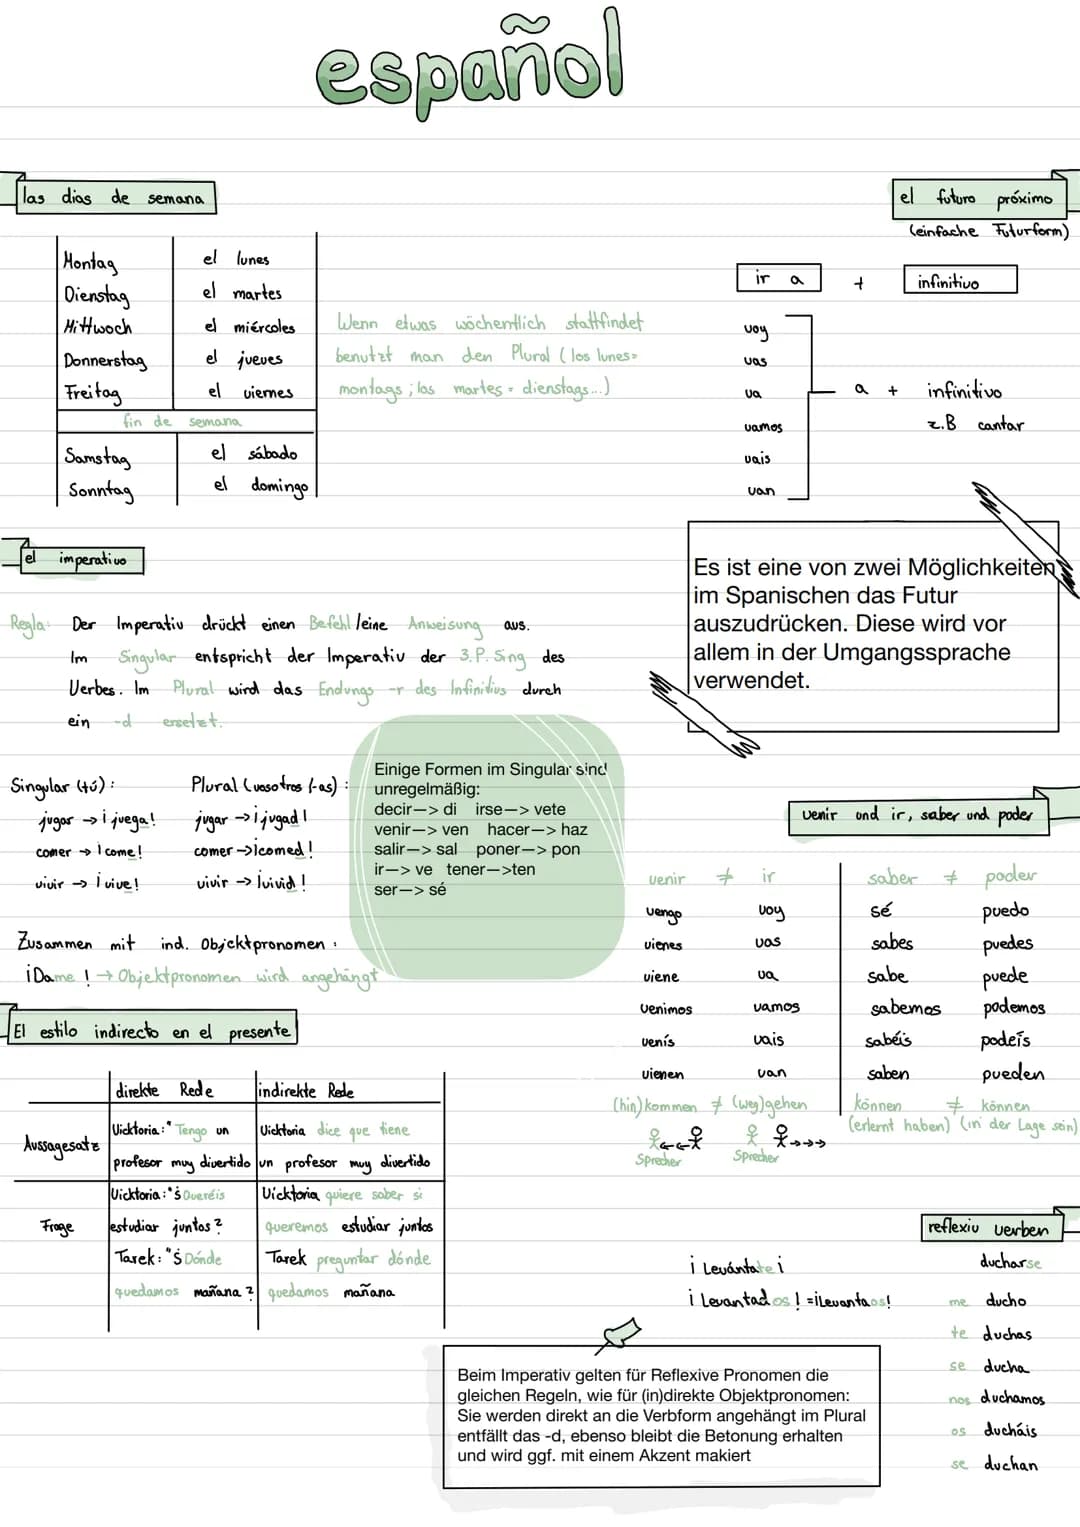 español
las dias de semana
Montag el lunes
Dienstag el martes
Mittwoch el miércoles
Donnerstag el jueves
Freitag el viernes
fin de semana
Samstag el sábado
Sonntag el domingo
Wenn etwas wöchentlich stattfindet
benutzt man den Plural (los lunes=
montags; los martes = dienstags...)
el futuro próximo
(einfache Futurform)
ir a + infinitivo
voy
vas
va
vamos
vais
van
a + infinitivo
z.B cantar
Es ist eine von zwei Möglichkeiten
im Spanischen das Futur
auszudrücken. Diese wird vor
allem in der Umgangssprache
verwendet.
el imperativo
Regla: Der Imperativ drückt einen Befehl/eine Anweisung aus.
Im Singular entspricht der Imperativ der 3.P. Sing des
Verbes. Im Plural wird das Endungs -r des Infinitivs durch
ein -d ersetzt.
Singular (tú): Plural (vosotros/-as):
jugar → ¡juega! jugar → ¡jugad!
comer → ¡come! comer → ¡comed!
vivir → ¡vive! vivir → ¡vivid!
Einige Formen im Singular sind
unregelmäßig:
decir—> di irse—> vete
venir—> ven hacer—> haz
salir—> sal poner—> pon
ir—> ve tener—>ten
ser—> sé
Zusammen mit ind. Objektpronomen:
¡Dame! → Objektpronomen wird angehängt
venir und ir, saber und poder
venir ≠ ir saber ≠ poder
vengo voy sé puedo
vienes vas sabes puedes
viene va sabe puede
venimos vamos sabemos podemos
venís vais sabéis podeis
vienen van saben pueden
(hin)kommen ≠ (weg)gehen können ≠ können
(erlernt haben) (in der Lage sein)
Sprecher Sprecher
El estilo indirecto en el presente
direkte Rede indirekte Rede
Aussagesatz
Vicktoria: "Tengo un
profesor muy divertido
Vicktoria dice que tiene
un profesor muy divertido
Frage
Vicktoria: "¿Queréis
estudiar juntos?
Vicktoria quiere saber si
queremos estudiar juntos
Tarek: "¿Dónde
quedamos mañana?
Tarek preguntar dónde
quedamos mañana
reflexiv verben
ducharse
me ducho
te duchas
se ducha
nos duchamos
os ducháis
se duchan
¡Levántate¡
¡Levantados! = ¡Levantaos!
Beim Imperativ gelten für Reflexive Pronomen die
gleichen Regeln, wie für (in)direkte Objektpronomen:
Sie werden direkt an die Verbform angehängt im Plural
entfällt das -d, ebenso bleibt die Betonung erhalten
und wird ggf. mit einem Akzent makiert